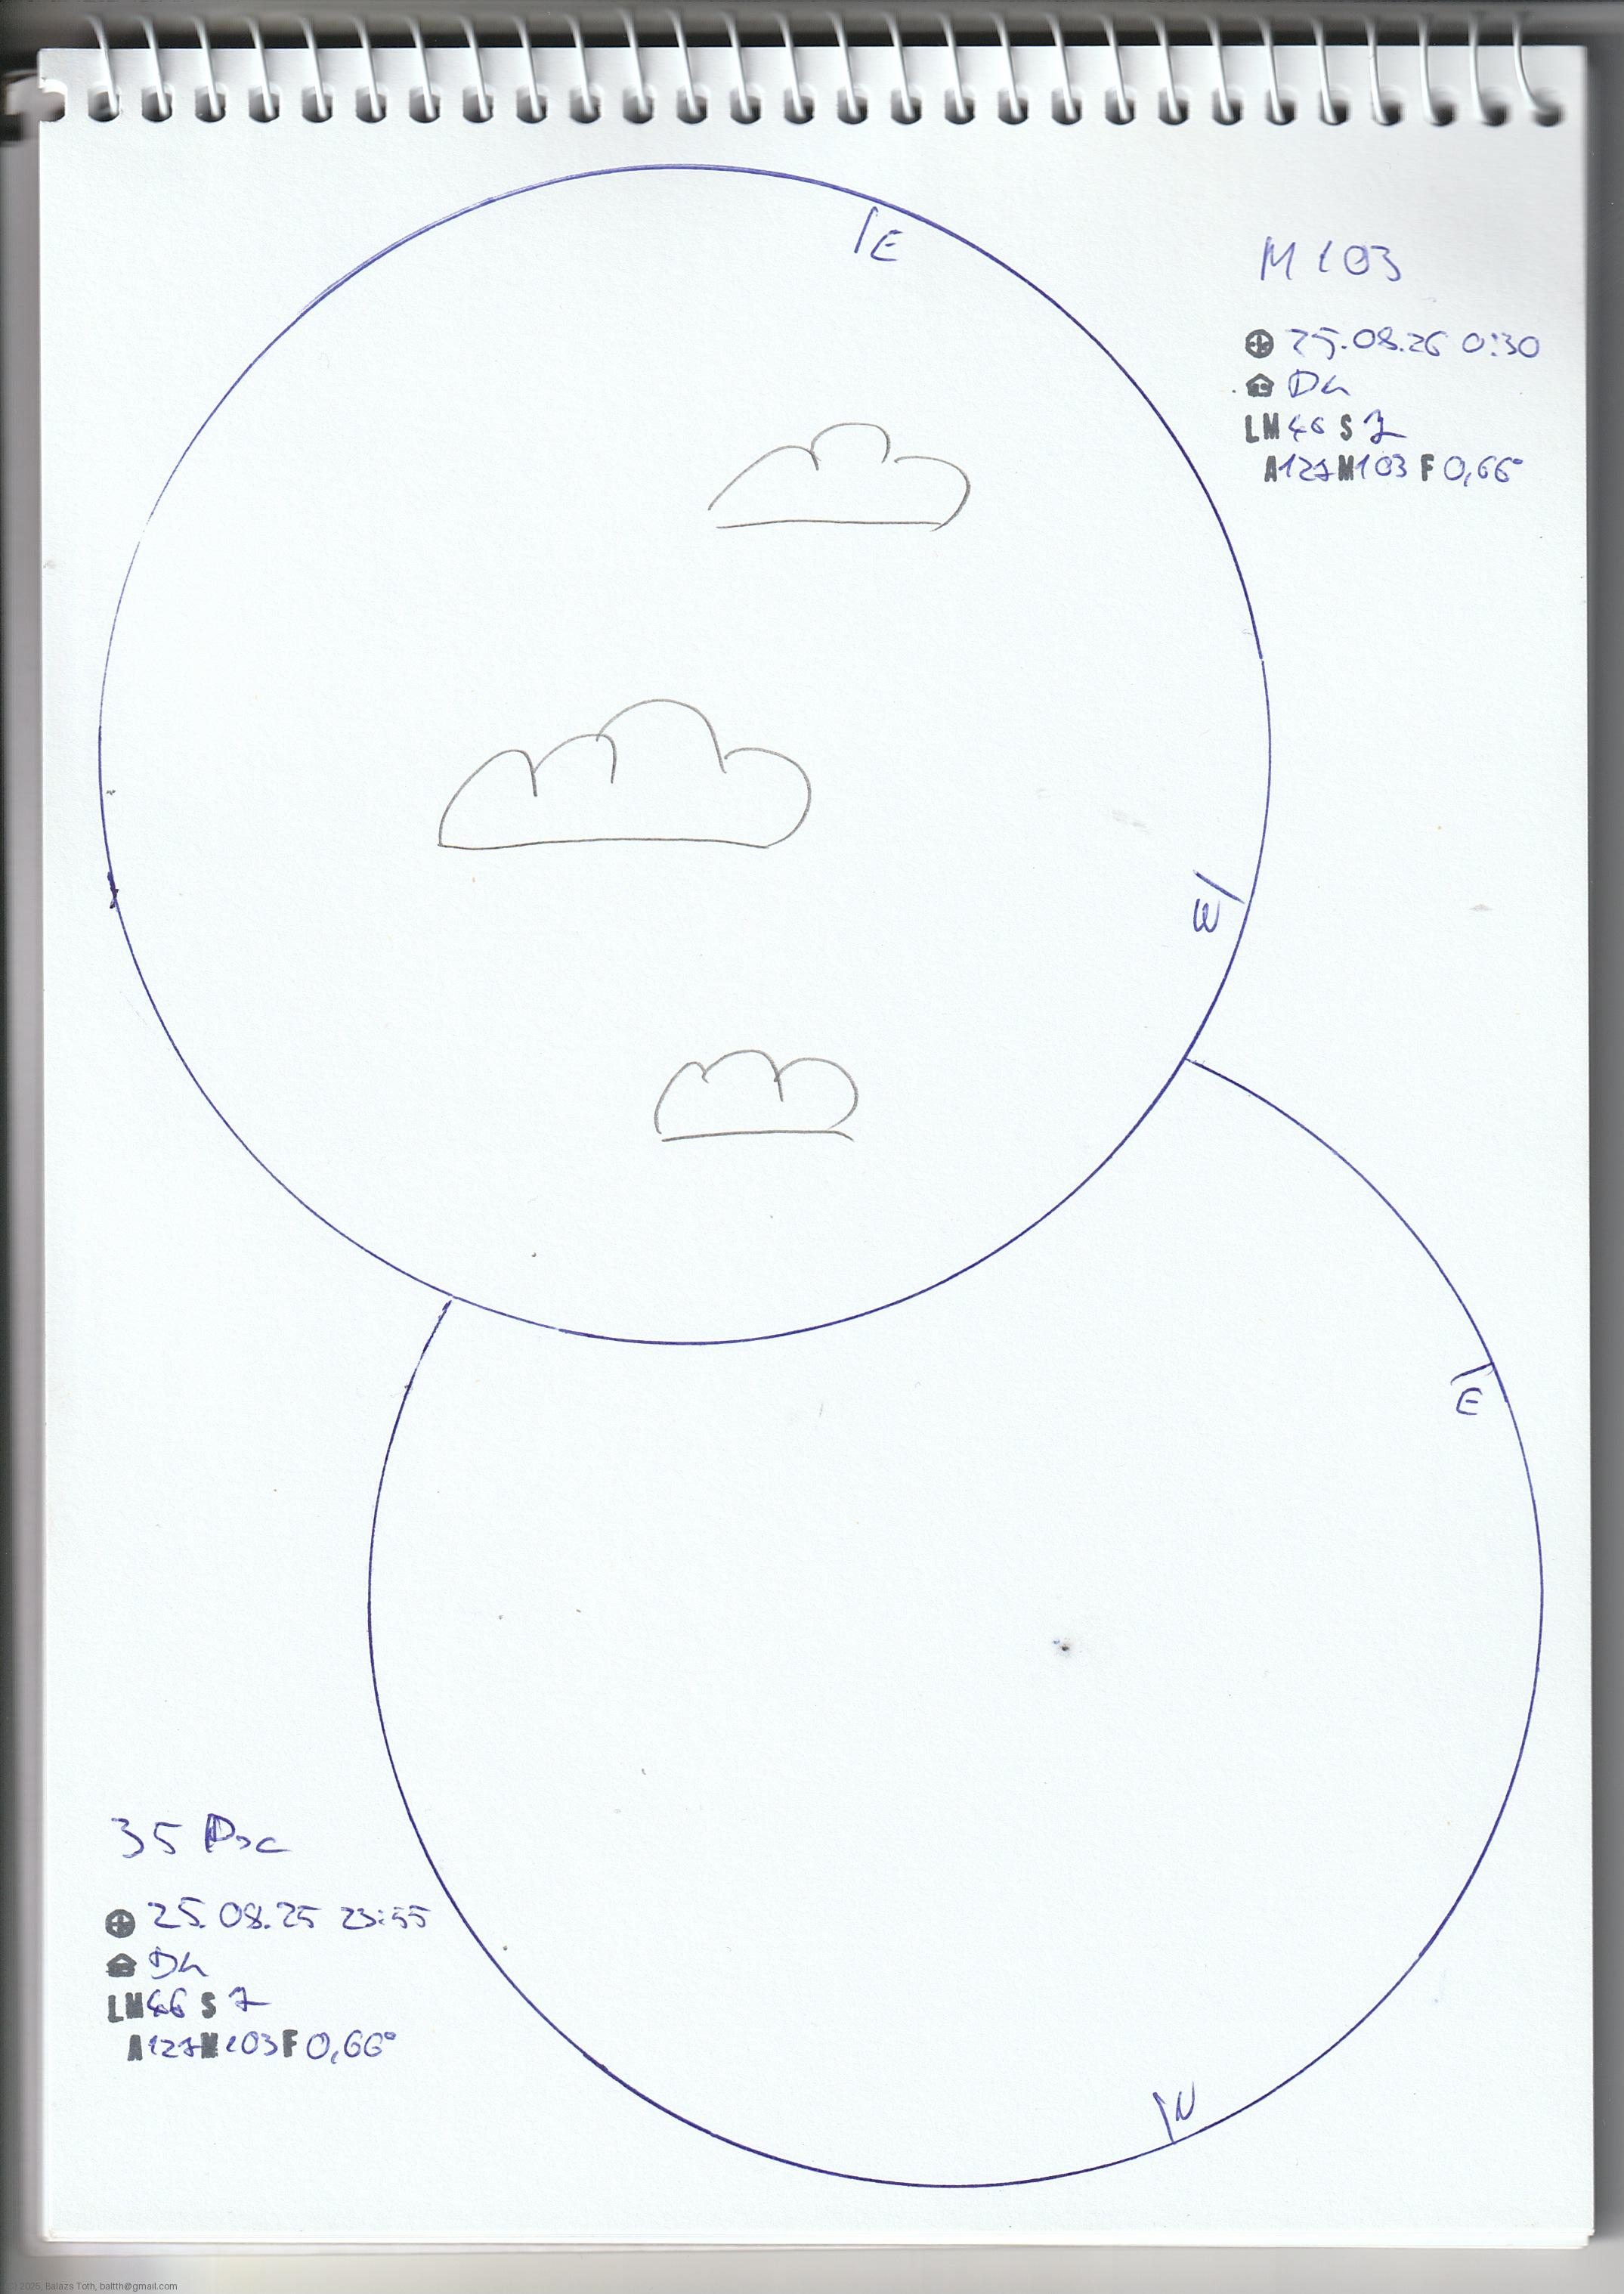 E
M 103
25.08.26 0:30
Dh
LM 46 S 7
A 127 M 103 F 0,66°
E
N
35 Psc
25.08.25 23:55
Dh
LM 46 S 7
A 127 M 103 F 0,66°
2025, Balazs Toth, baltth@gmail.com